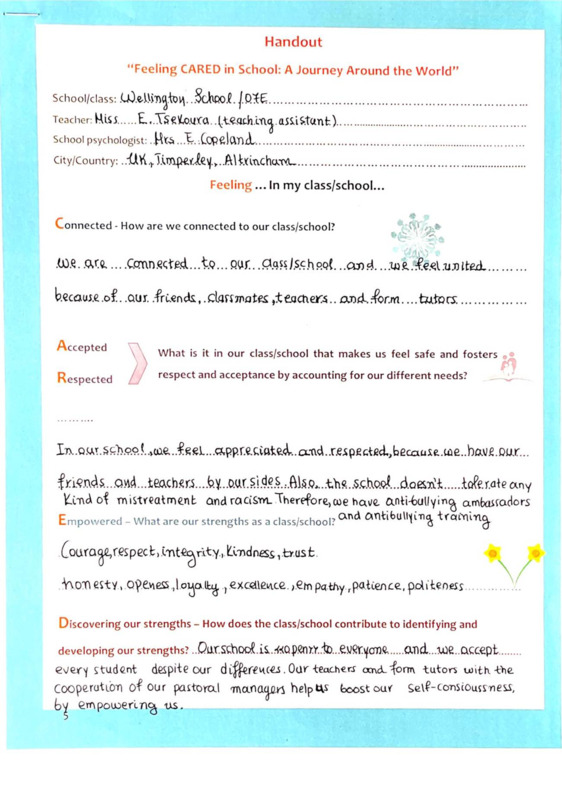 Handout
“Feeling CARED in School: A Journey Around the World”
School/class: Wellington School /07E
Teacher: Miss E. Tsekoura (teaching assistant)
School psychologist: Mrs E Copeland
City/Country: UK, Timperley, Altrincham
Feeling ... In my class/school...
Connected - How are we connected to our class/school?
we are connected to our class/school and we feel united
because of our friends, classmates, teachers and form tutors
Accepted
Respected
What is it in our class/school that makes us feel safe and fosters
respect and acceptance by accounting for our different needs?
In our school, we feel appreciated and respected, because we have our
friends and teachers by our sides. Also, the school doesn't tolerate any
kind of mistreatment and racism. Therefore, we have antibullying ambassadors
and antibullying training
Empowered – What are our strengths as a class/school?
Courage, respect, integrity, kindness, trust.
honesty, openess, loyalty, excellence, empathy, patience, politeness
Discovering our strengths – How does the class/school contribute to identifying and
developing our strengths? Our school is to everyone and we accept
every student despite our differences. Our teachers and form tutors with the
cooperation of our pastoral managers help us boost our self-consioussness,
by empowering us.
5